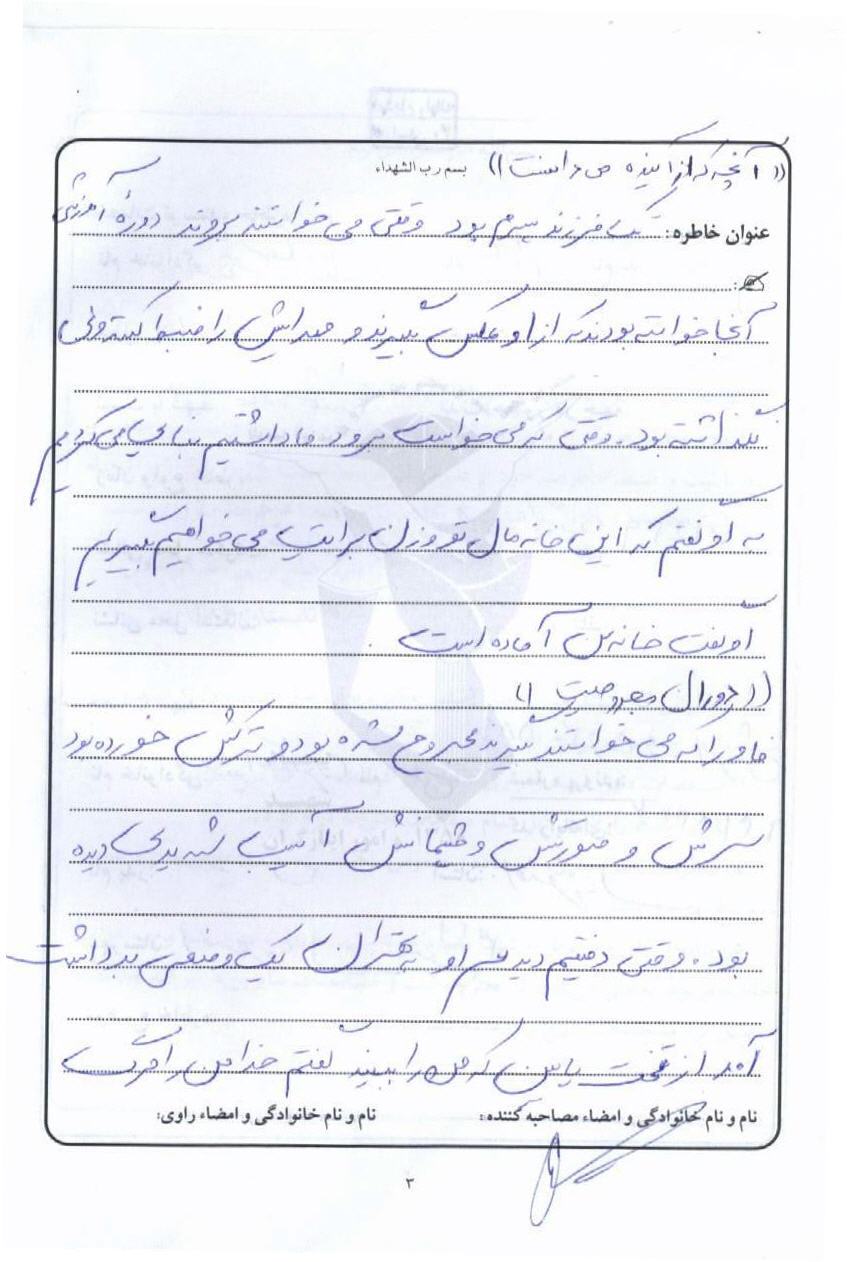 (( آنچه که از آینده می دانست ))
بسم رب الشهداء
عنوان خاطره: تک فرزند پسرم بود وقتی می خواستند بروند دورهٔ آموزشی
آنجا خواسته بودند که از او عکس بگیرند و صدایش را ضبط کنند ولی
نگذاشته بود. وقتی که می خواست برود ما داشتیم بنایی می کردیم
به او گفتم که این خانه مال تو و زن برایت می خواهیم بگیریم
او گفت خانه من آماده است.
(( دوران مجروحیت ))
که می خواستند مجروح شده بود و ترکش خورده بود
سرش و صورتش و چشمانش آسیب شدیدی دیده
بود. وقتی رفتیم دیدیم او یک وضعی بد داشت
آمد از تخت پایین که من را ببیند گفتم خدا من را مرگ
نام و نام خانوادگی و امضاء مصاحبه کننده:
نام و نام خانوادگی و امضاء راوی:
۳